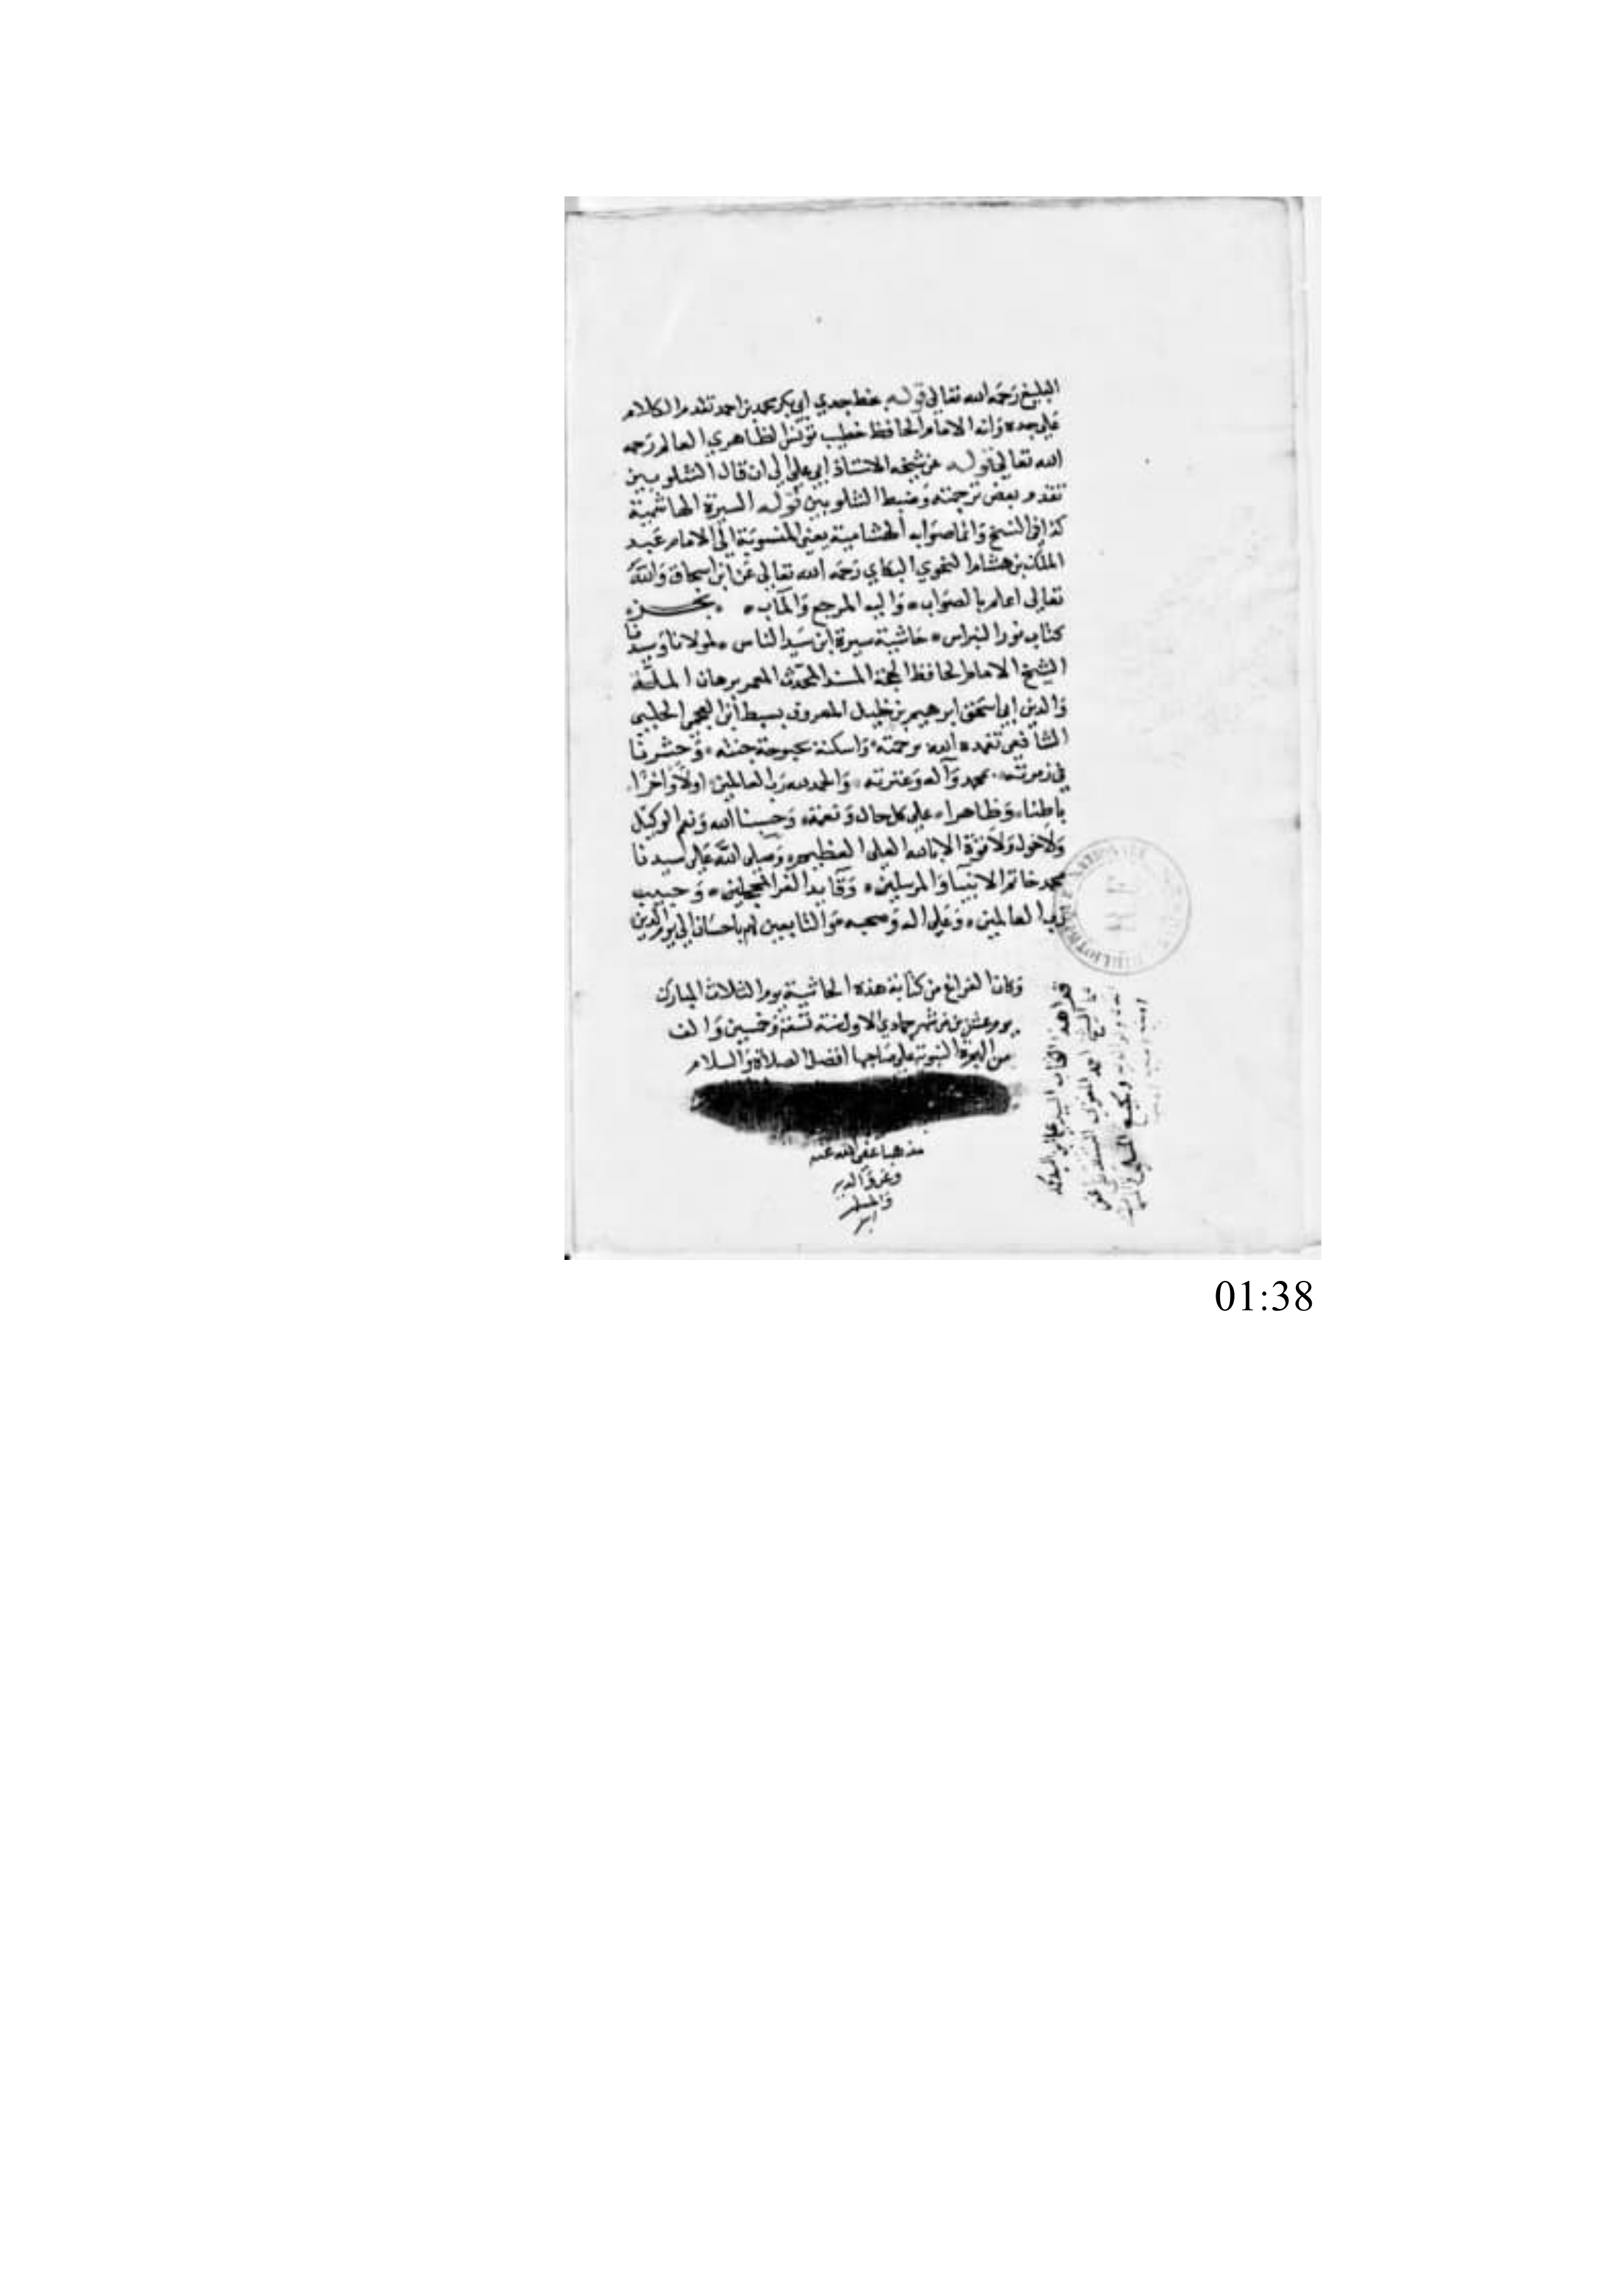 البليغ رحمه الله تعالى قوله بخط جدي ابي بكر محمد بن احمد تقدم الكلام
على جده وانه الامام الحافظ خطيب تونس الظاهري العالم رحمه
الله تعالى قوله عن شيخه الاستاذ ابي علي الى ان قال الشلوبين
تقدم بعض ترجمته وضبط الشلوبين قوله السيرة الهاشمية
كذا في النسخ وانما صوابه الهشامية يعني المنسوبة الى الامام عبد
الملك بن هشام النحوي البكاي رحمه الله تعالى عن ابن اسحاق والله
تعالى اعلم بالصواب واليه المرجع والمآب نجز
كتاب نور النبراس حاشية سيرة ابن سيد الناس لمولانا وسيدنا
الشيخ الامام الحافظ الحجة المسند المحدث المعمر برهان الملة
والدين ابي اسحق ابرهيم بن خليل المعروف بسبط ابن العجمي الحلبي
الشافعي تغمده الله برحمته واسكنه بحبوحة جنته وحشرنا
في زمرته بمحمد وآله وعترته والحمد لله رب العالمين اولا واخرا
باطنا وظاهرا على كل حال ونعمة وحسبنا الله ونعم الوكيل
ولا حول ولا قوة الا بالله العلي العظيم وصلى الله على سيدنا
محمد خاتم الانبيا والمرسلين وقايد الغر المحجلين وحبيب
رب العالمين وعلى اله وصحبه والتابعين لهم باحسان الى يوم الدين
وكان الفراغ من كتابة هذه الحاشية يوم الثلاث المبارك
من شهر جمادي الاول سنة تسعة وخمسين والف
من الهجرة النبوية على صاحبها افضل الصلاة والسلام
مذهبا عفى الله عنه
BIBLIOTHEQUE NATIONALE
قرا هذا الكتاب
الشيخ احمد
01:38